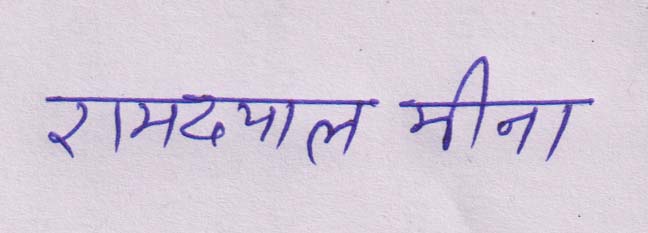 रामदयाल मीना